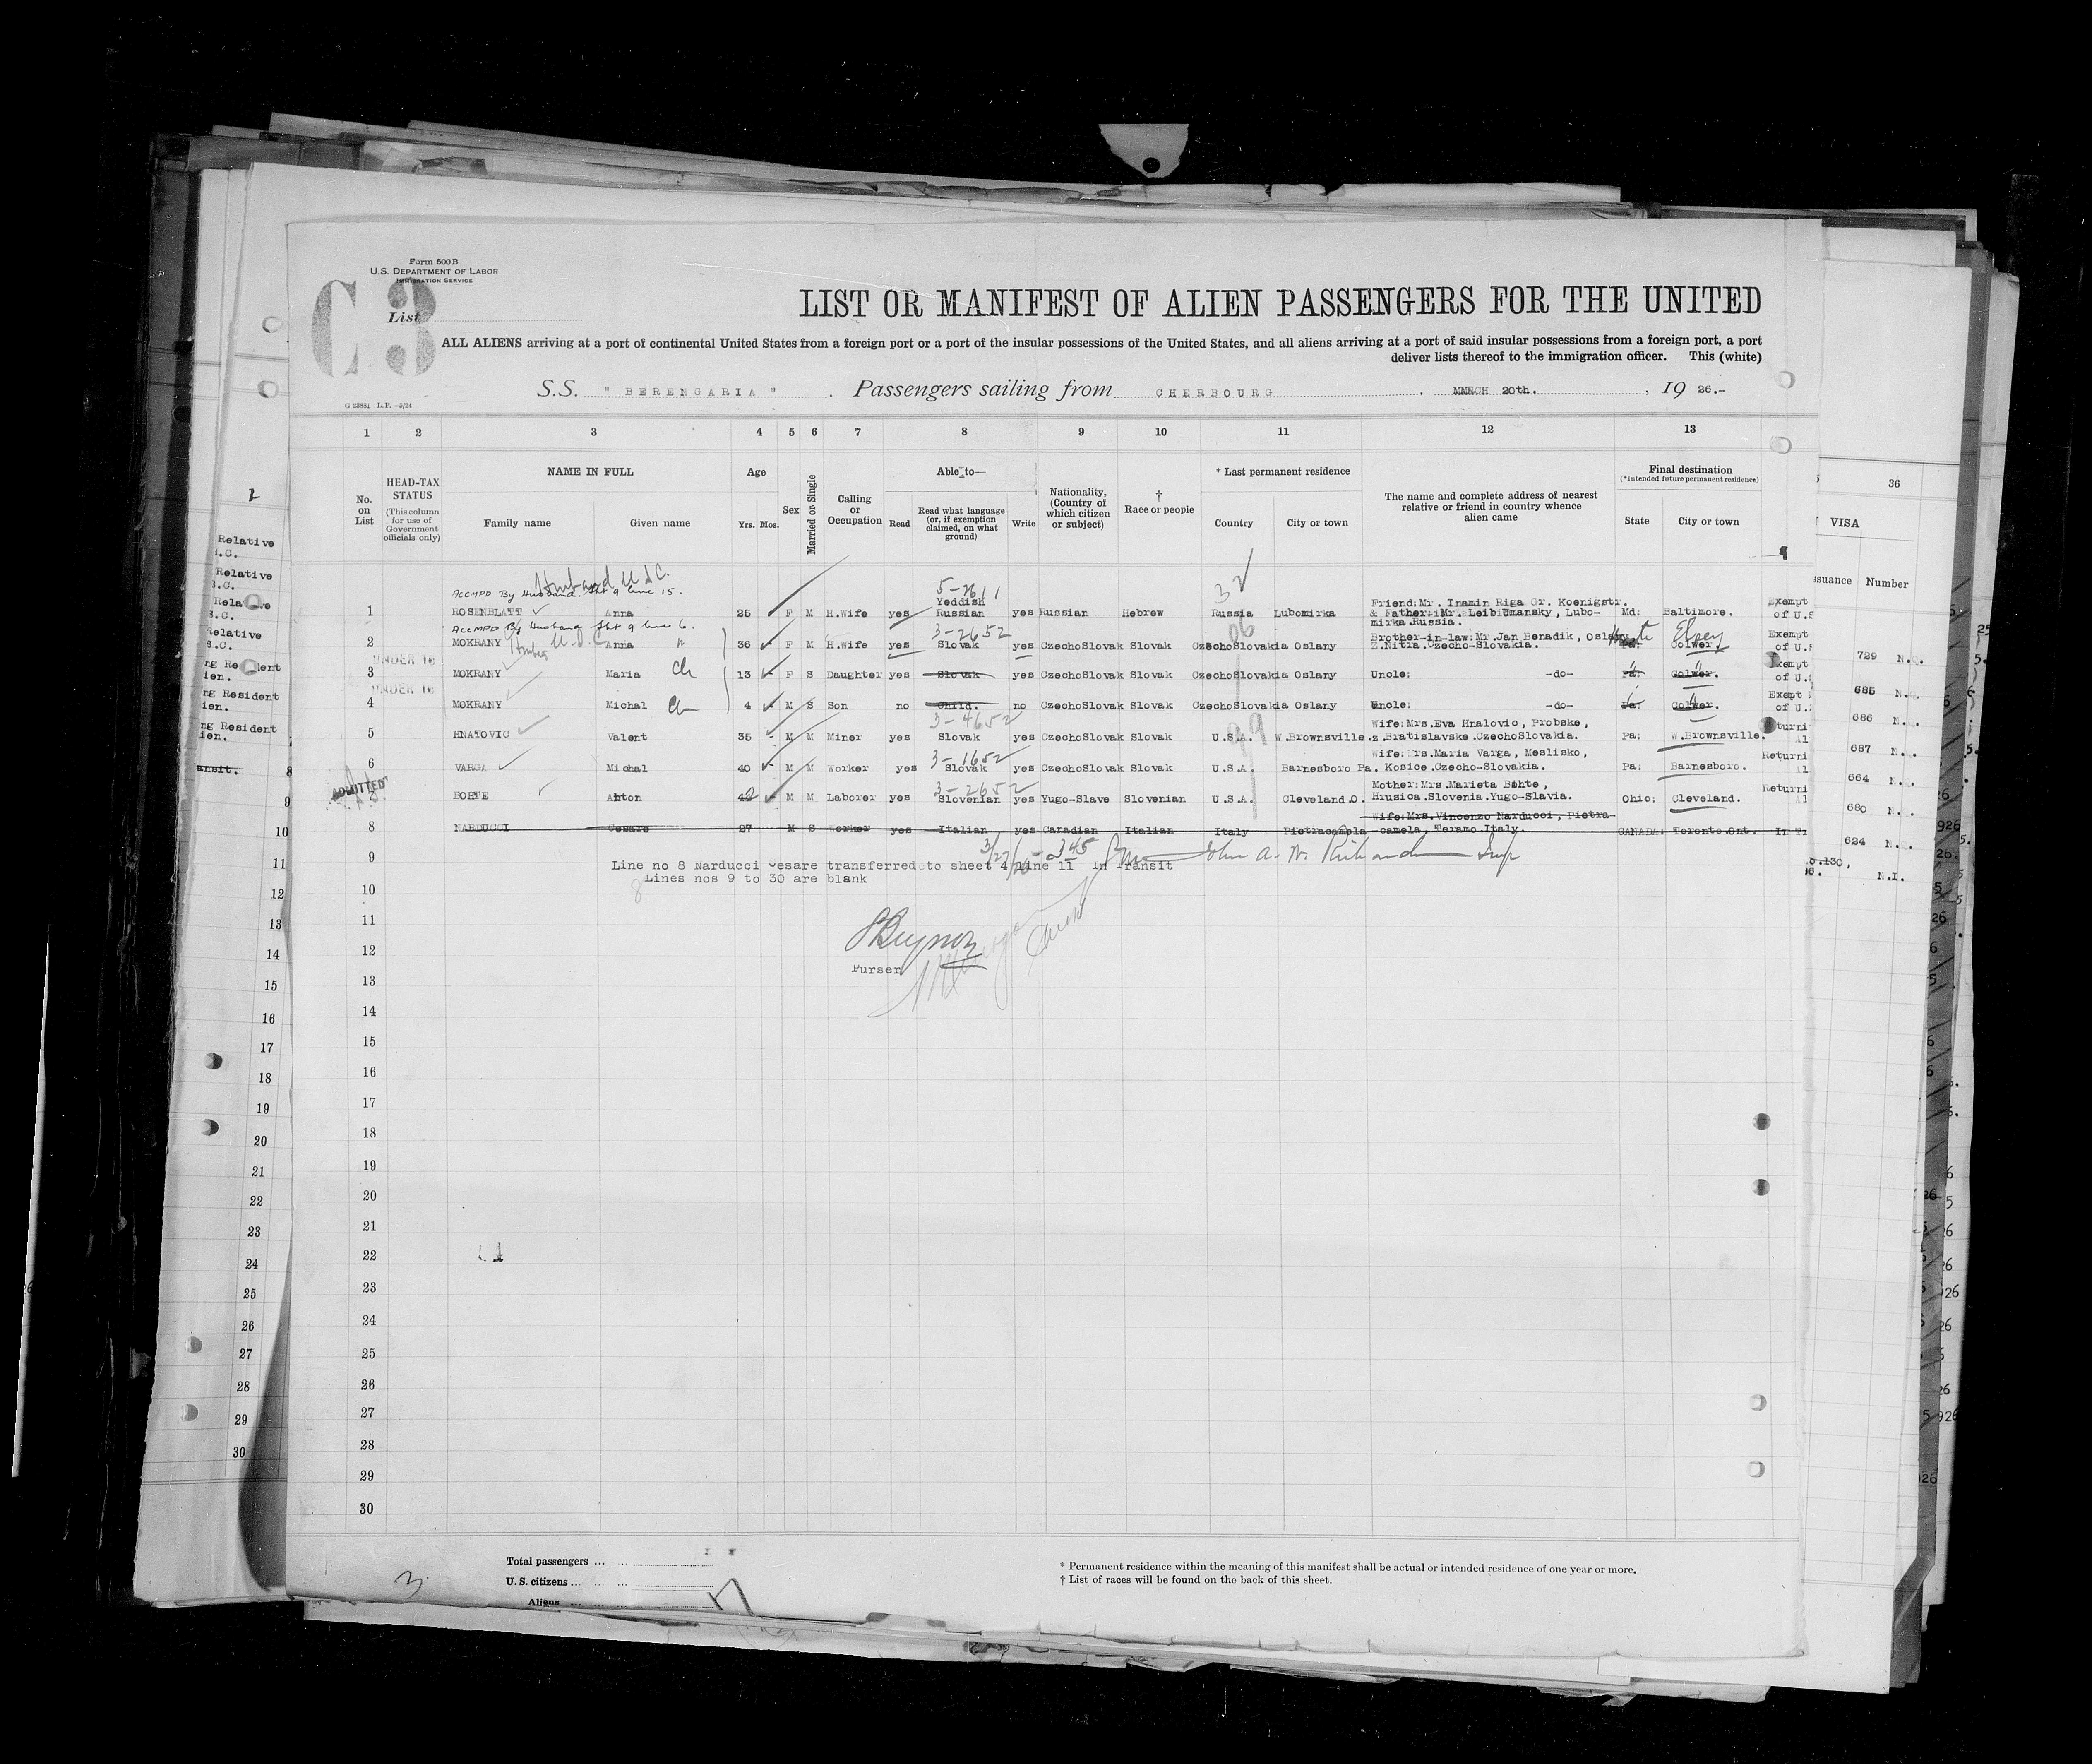 Form 500 B
U.S. DEPARTMENT OF LABOR
IMMIGRATION SERVICE
C3
List
LIST OR MANIFEST OF ALIEN PASSENGERS FOR THE UNITED
ALL ALIENS arriving at a port of continental United States from a foreign port or a port of the insular possessions of the United States, and all aliens arriving at a port of said insular possessions from a foreign port, a port
deliver lists thereof to the immigration officer. This (white)
S.S. " BERENGARIA " . Passengers sailing from CHERBOURG . MARCH 20th. , 19 26.-
G 23881 L.P.—5/24
1 2 3 4 5 6 7 8 9 10 11 12 13
No. on List
HEAD-TAX STATUS (This column for use of Government officials only)
NAME IN FULL
Family name Given name
Age
Yrs. Mos.
Sex
Married or Single
Calling or Occupation
Able to—
Read
Read what language (or, if exemption claimed, on what ground)
Write
Nationality. (Country of which citizen or subject)
† Race or people
* Last permanent residence
Country City or town
The name and complete address of nearest relative or friend in country whence alien came
Final destination
(*Intended future permanent residence)
State City or town
36
VISA
Number
Husband U.S.C.
ACCMPD By Husband Sht 9 line 15.
5-2611
32
1 ROSENBLATT Anna 25 F M H.Wife yes Yeddish Russian yes Russian Hebrew Russia Lubomirka Friend:Mr. Inamin Riga Gr. Koenigstr. & Father:Mr.Leib Umansky, Lubo-mirka.Russia. Md: Baltimore. Exempt of U.S
ACCMPD By Husband Sht 9 line 6.
3-2652
2 MOKRANY Anna 36 F M H.Wife yes Slovak yes CzechoSlovak Slovak CzechoSlovakia Oslany Brother-in-law:Mr.Jan Benadik, Oslany Z.Nitra.Czecho-Slovakia. Pa: Colwer. Exempt of U.S
UNDER 16
3 MOKRANY Maria Ch 13 F S Daughter yes Slovak yes CzechoSlovak Slovak CzechoSlovakia Oslany Uncle: -do- Pa: Colwer. Exempt of U.
UNDER 16
4 MOKRANY Michal Ch 4 M S Son no Child. no CzechoSlovak Slovak CzechoSlovakia Oslany Uncle: -do- Pa: Colwer. Exempt of U.
3-4652
5 HNATOVIC Valent 35 M M Miner yes Slovak yes CzechoSlovak Slovak U.S.A. W.Brownsville. Wife:Mrs.Eva Hnalovic, Probske, z.Bratislavske.CzechoSlovakia. Pa: W.Brownsville. Returni Al
3-1652
6 VARGA Michal 40 M M Worker yes Slovak yes CzechoSlovak Slovak U.S.A. Barnesboro Pa. Wife:Mrs.Maria Varga, Meslisko, Kosice.Czecho-Slovakia. Pa: Barnesboro. Returni Al
ADMITTED
3-2652
BOHTE Anton 42 M M Laborer yes Slovenian yes Yugo-Slave Slovenian U.S.A. Cleveland.O. Mother:Mrs.Marieta Bohte, Hrusica.Slovenia.Yugo-Slavia. Ohio: Cleveland. Returni Al
8 NARDUCCI Cesare 27 M S Worker yes Italian yes Canadian Italian Italy Pietracamela Wife:Mrs.Vincenzo Narducci, Pietra-camela, Teramo.Italy. CANADA: Toronto.Ont.
9 Line no 8 Narducci Cesare transferred to sheet 4 line 11 In Transit
10 Lines nos 9 to 30 are blank
11
12
Purser
13
14
15
16
17
18
19
20
21
22
23
24
25
26
27
28
29
30
729 N.
685 N.
686 N.
687 N.
664 N.
680 N.
624 N.
N.I.
Total passengers ...
U. S. citizens ...
Aliens ...
3
* Permanent residence within the meaning of this manifest shall be actual or intended residence of one year or more.
† List of races will be found on the back of this sheet.